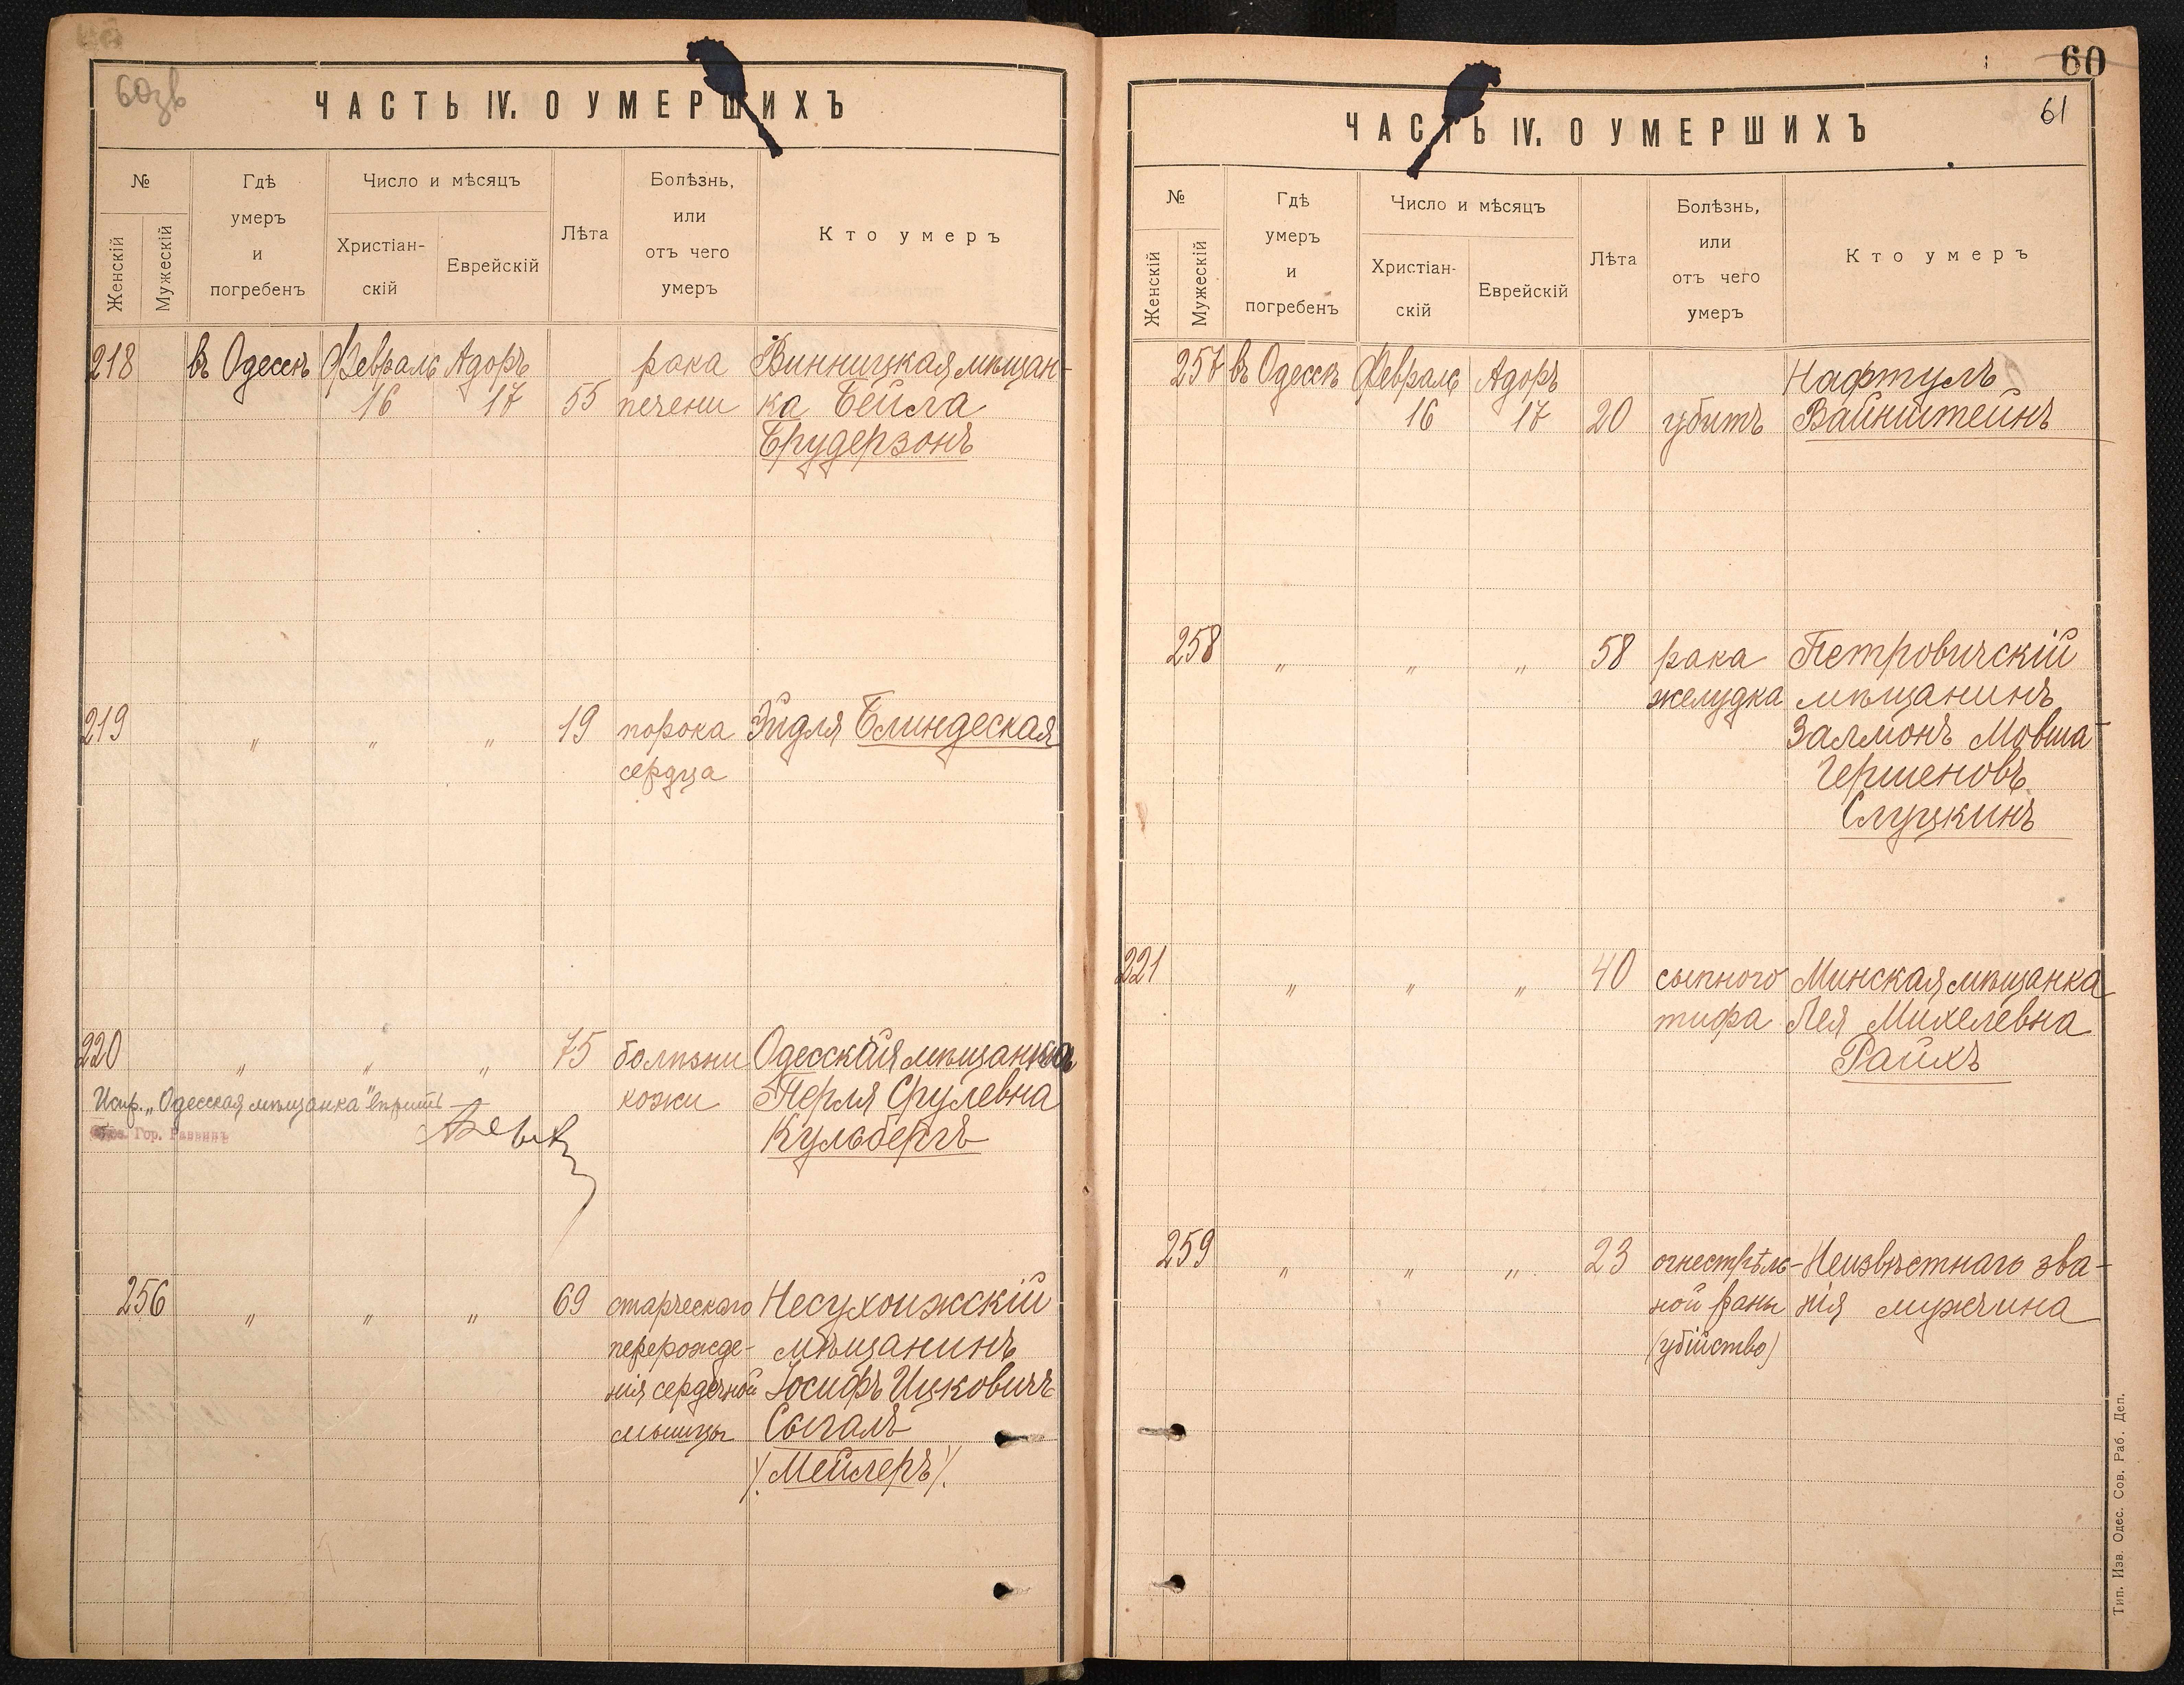 60зв
ЧАСТЬ IV. О УМЕРШИХЪ
№
Женскій
Мужескій
Гдѣ
умеръ
и
погребенъ
Число и мѣсяцъ
Христіан-
скій
Еврейскій
Лѣта
Болѣзнь,
или
отъ чего
умеръ
Кто умеръ
218 въ Одессѣ Февраль Адоръ рака Винницкая мѣщан-
16 17 55 печени ка Бейла
Брудерзонъ
219 " " " 19 порока Эйдля Блиндеская
сердца
220 " " " 75 болѣзни Одесская мѣщанка
Испр. „Одесская мѣщанка" вѣрить кожи Перля Срулевна
Гор. Раввинъ
Кульбергъ
256 " " " 69 старческаго Несухоижскій
перерожде- мѣщанинъ
нія сердечной Іосифъ Ицковичъ
мышцы Сыгалъ
/.Мейлеръ/.
60
61
ЧАСТЬ IV. О УМЕРШИХЪ
№
Женскій
Мужескій
Гдѣ
умеръ
и
погребенъ
Число и мѣсяцъ
Христіан-
скій
Еврейскій
Лѣта
Болѣзнь,
или
отъ чего
умеръ
Кто умеръ
257 въ Одессѣ Февраль Адоръ Нафтулъ
16 17 20 убитъ Вайнштейнъ
258 " " " 58 рака Петровичскій
желудка мѣщанинъ
Залмонъ Мовша-
Гершеновъ
Слуцкинъ
221 " " " 40 сыпного Минская мѣщанка
тифа Лея Михелевна
Райхъ
259 " " " 23 огнестрѣль- Неизвѣстнаго зва-
ной раны нія мужчина
(убійство)
Тип. Изв. Одес. Сов. Раб. Деп.